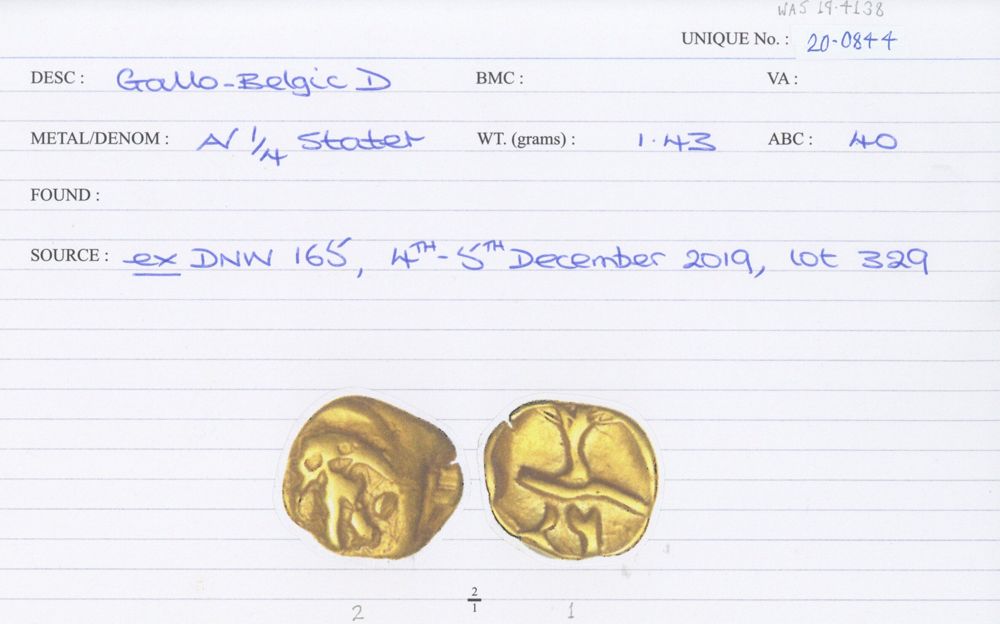 WAS 19.4138
UNIQUE No. : 20-0844
DESC : Gallo-Belgic D BMC : VA :
METAL/DENOM : AV 1/4 Stater WT. (grams) : 1.43 ABC : 40
FOUND :
SOURCE : ex DNW 165, 4TH-5TH December 2019, lot 329
2/1
2 1